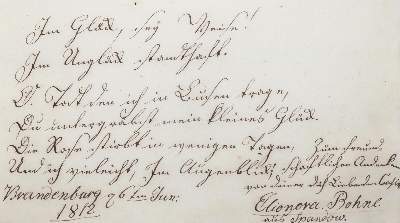 Im Glück, sey Weise!
Im Unglück standhaft.
O. Tod den ich in Busen trage,
Du untergräbst mein kleines Glük.
Die Rose stirbt in wenigen Tagen,
Und ich vieleicht, Im Augenblik,
Zum freund
schaftlichen Andenken
von deiner dich Liebenden
Brandenburg 26ten Jun:
1812
Elionora Bohne
aus Spandow.